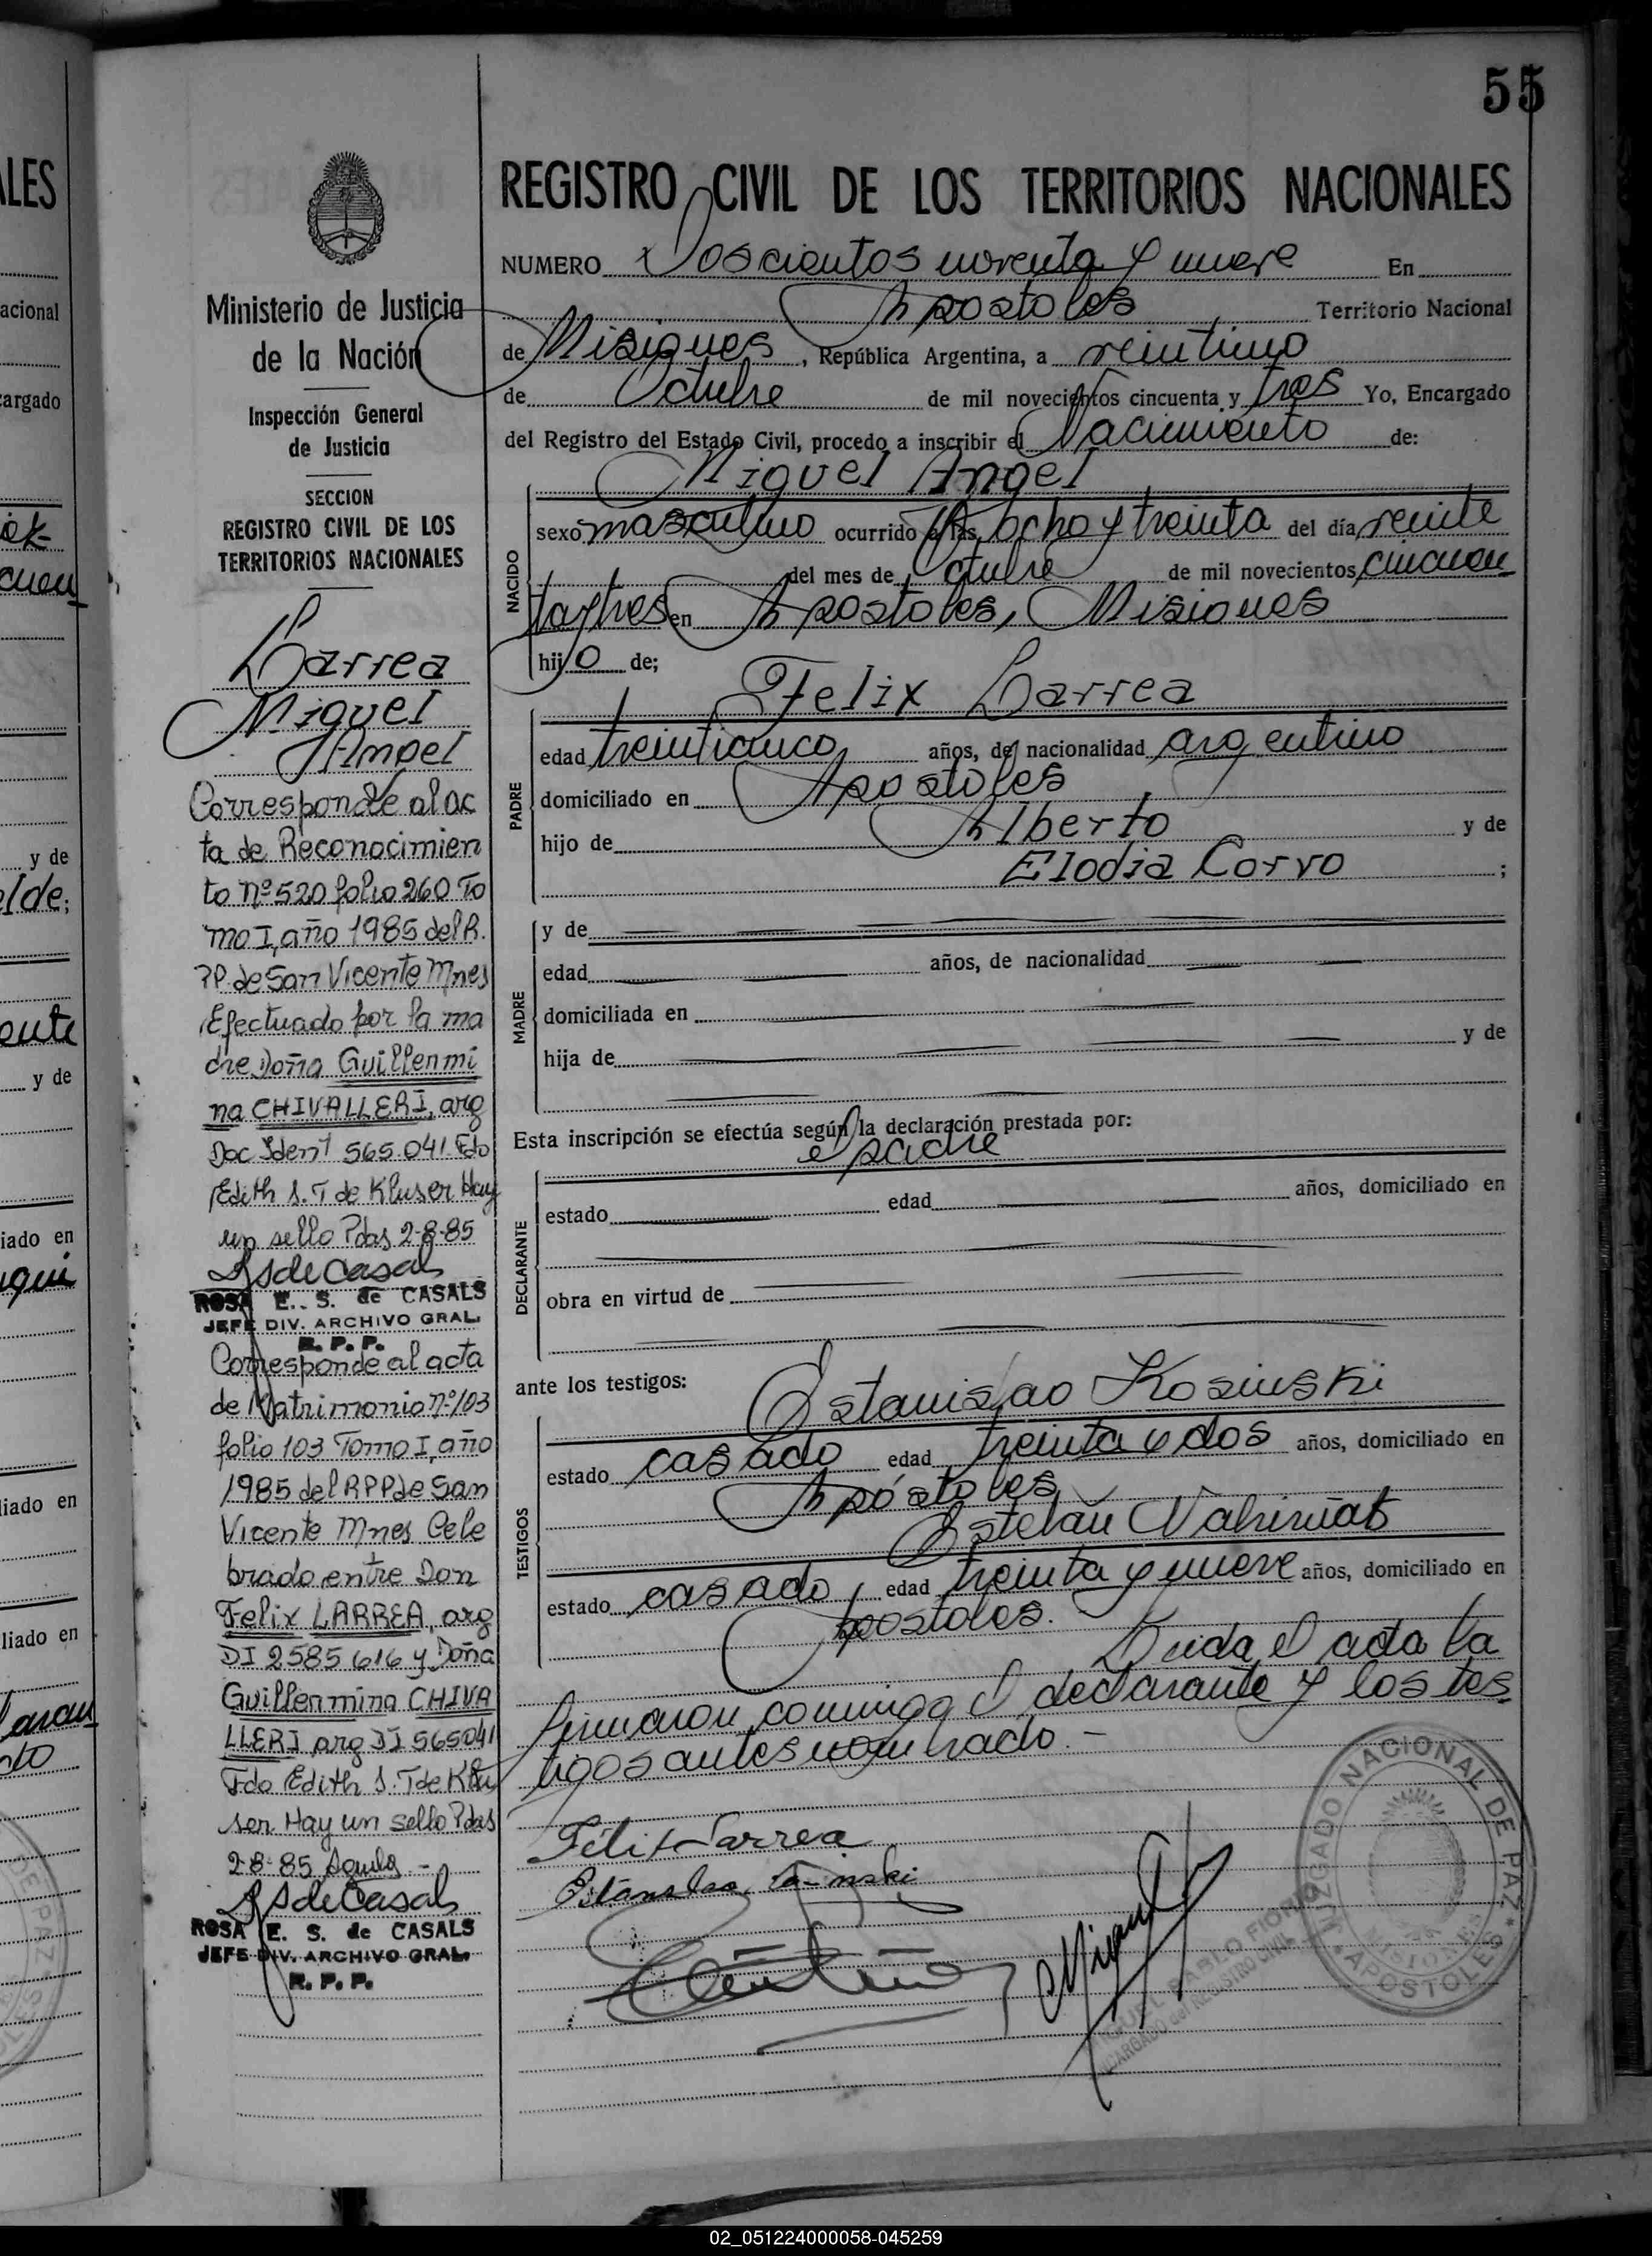 55
REGISTRO CIVIL DE LOS TERRITORIOS NACIONALES
NUMERO Doscientos noventa y nueve En
Apostoles Territorio Nacional
de Misiones, República Argentina, a veintiuno
de Octubre de mil novecientos cincuenta y tres Yo, Encargado
del Registro del Estado Civil, procedo a inscribir el Nacimiento de:
Miguel Angel
NACIDO
sexo masculino ocurrido a las ocho y treinta del día veinte
del mes de Octubre de mil novecientos cincuen
taytres en Apostoles, Misiones
hijo de;
Felix Larrea
PADRE
edad treinticinco años, de nacionalidad argentino
domiciliado en Apostoles
hijo de Alberto y de
Elodia Corvo ;
MADRE
y de
edad años, de nacionalidad
domiciliada en
hija de y de
Esta inscripción se efectúa según la declaración prestada por:
el padre
DECLARANTE
estado edad años, domiciliado en
obra en virtud de
ante los testigos: Estanislao Kosinski
TESTIGOS
estado casado edad treinta y dos años, domiciliado en
Apóstoles
Esteban
estado casado, edad treinta y nueve años, domiciliado en
Apostoles. Leida el acta la
firmaron conmigo el declarante y los tes
tigos antes nombrado.-
Félix Larrea
Estanslao
JUZGADO NACIONAL DE PAZ
APOSTOLES
MISIONES
MIGUEL PABLO
ENCARGADO del REGISTRO CIVIL
Ministerio de Justicia
de la Nación
Inspección General
de Justicia
SECCION
REGISTRO CIVIL DE LOS
TERRITORIOS NACIONALES
Larrea
Miguel
Angel
Corresponde al ac
ta de Reconocimien
to nº 520 folio 260 To
mo I, año 1985 del R.
PP. de San Vicente Mnes
Efectuado por la ma
dre Doña Guillermi
na CHIVALLERI, arg
Doc Ident 565.041 Fdo
Edith S. T de Kluser Hay
un sello Pdas 2-8-85
RSdeCasals
ROSA E. S. de CASALS
JEFE DIV. ARCHIVO GRAL.
R. P. P.
Corresponde al acta
de Matrimonio nº 103
folio 103 Tomo I, año
1985 del RPP de San
Vicente Mnes Cele
brado entre Don
Felix LARREA, arg
DI 2585616 y Doña
Guillermina CHIVA
LLERI arg DI 565041
Fdo Edith S. T de Klu
ser Hay un sello Pdas
2-8-85
RSdeCasals
ROSA E. S. de CASALS
JEFE DIV. ARCHIVO GRAL.
R. P. P.
ALES
acional
cargado
cuen
y de
elde;
y de
iado en
iqui
liado en
liado en
02_051224000058-045259